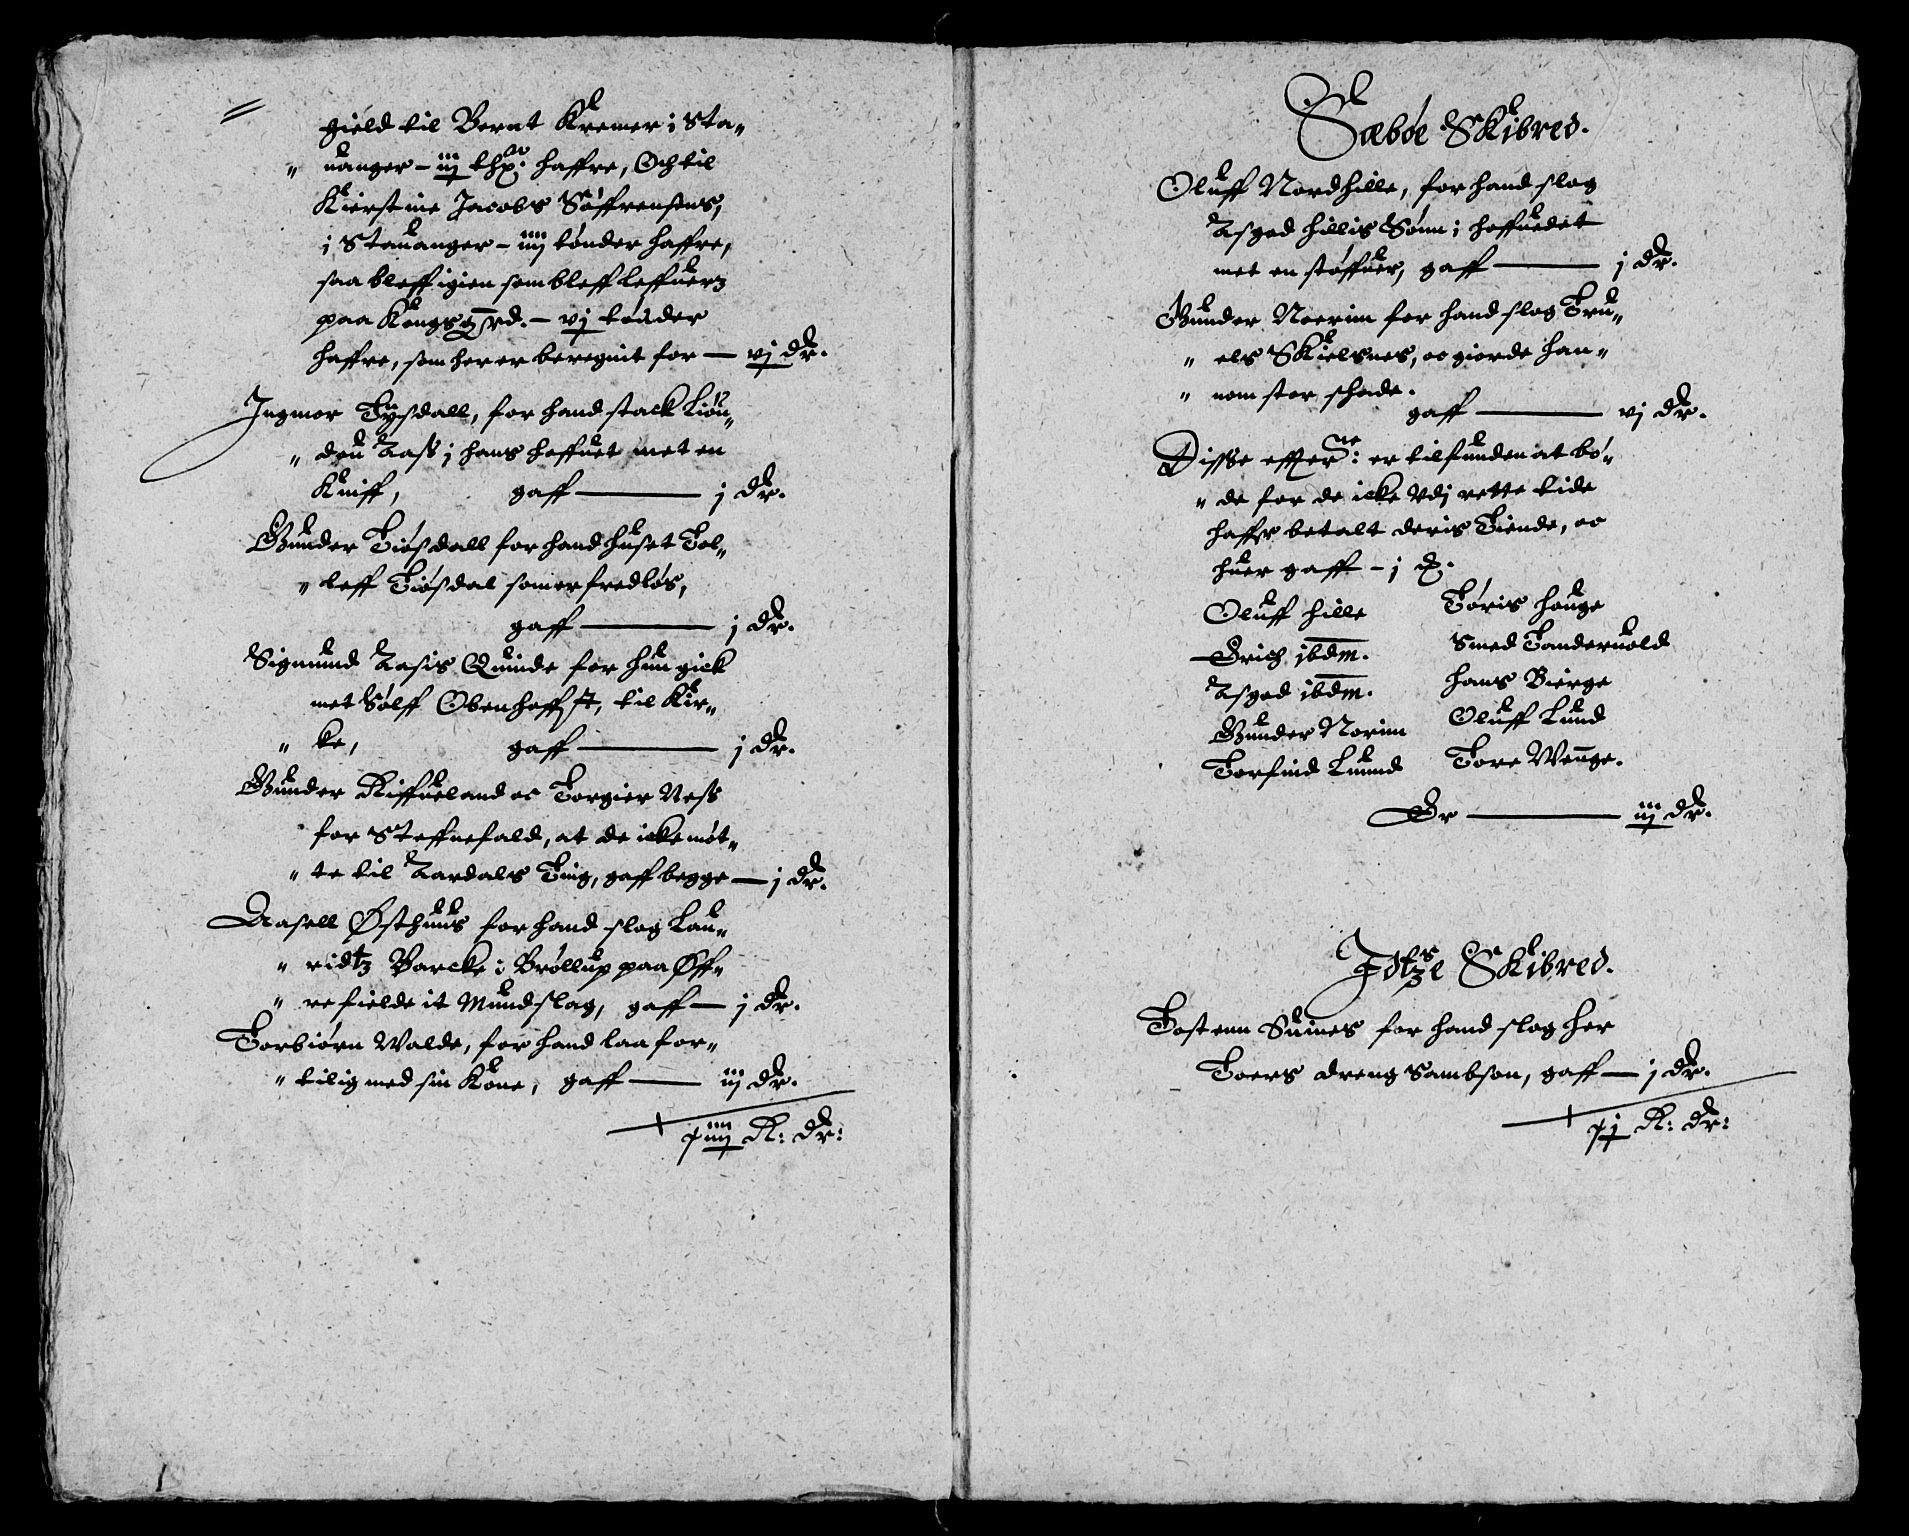 gield til Bernt Kremer i Sta„
„ uanger – iij thr: haffre, Och til
Kierstine Jacobs Söffrensens,
i Stauanger – iiij tønder haffre,
saa bleff igien som bleff leffuerz
paa Kongsgrd. – vj tønder
haffre, som her er beregnit for — vj dr.
Ingmor Tysdall, for hand stack Liöu„
„ dou Aass i hans hoffuet met en
Kniff, gaff — j dr.
Gunder Tiösdall for hand huset Tol„
„ leff Tiösdal som er fredløs,
gaff — j dr.
Sigmund Aasis Quinde for hun gick
met Sølff Obenhafft, til Kir„
„ ke, gaff — j dr.
Gunder Riffueland oc Torgier Ness
for Steffnefald, at de icke möt„
„ te til Aardals Ting, gaff begge — j dr.
Aasell Østhuus for hand slog Lau„
„ ridtz Barcke i Brøllup paa Øff„
„ refielde it Mundslag, gaff — j dr.
Torbiörn Walde, for hand laa for„
„ tilig med sin Kone, gaff — iij dr.
xiiij R: dr:
Sæbøe SKibred.
Oluff Nordhille, for hand slog
Asgod hillis Sønn i hoffuedet
met en støffuer, gaff — j dr.
Gunder Noerim for hand slog Tru„
„ els SKielsnes, oc giorde han„
„ nom stor schade.
gaff — vj dr.
Disse effterne: er tilfunden at bö„
„ de for de icke vdj rette tide
haffr betalt deris Tiende, oc
huer gaff – j
Oluff hille Töris houge
Erich ibdm. Smed Tanderuold
Asgod ibdm. hans Bierge
Gunder Norim Oluff Lund
Torfind Luund Tore Wenge.
Er — iij dr.
Jdtzse SKibred.
Tostenn Suines for hand slog her
Toers dreng Sambson, gaff — j dr.
xj R: dr: